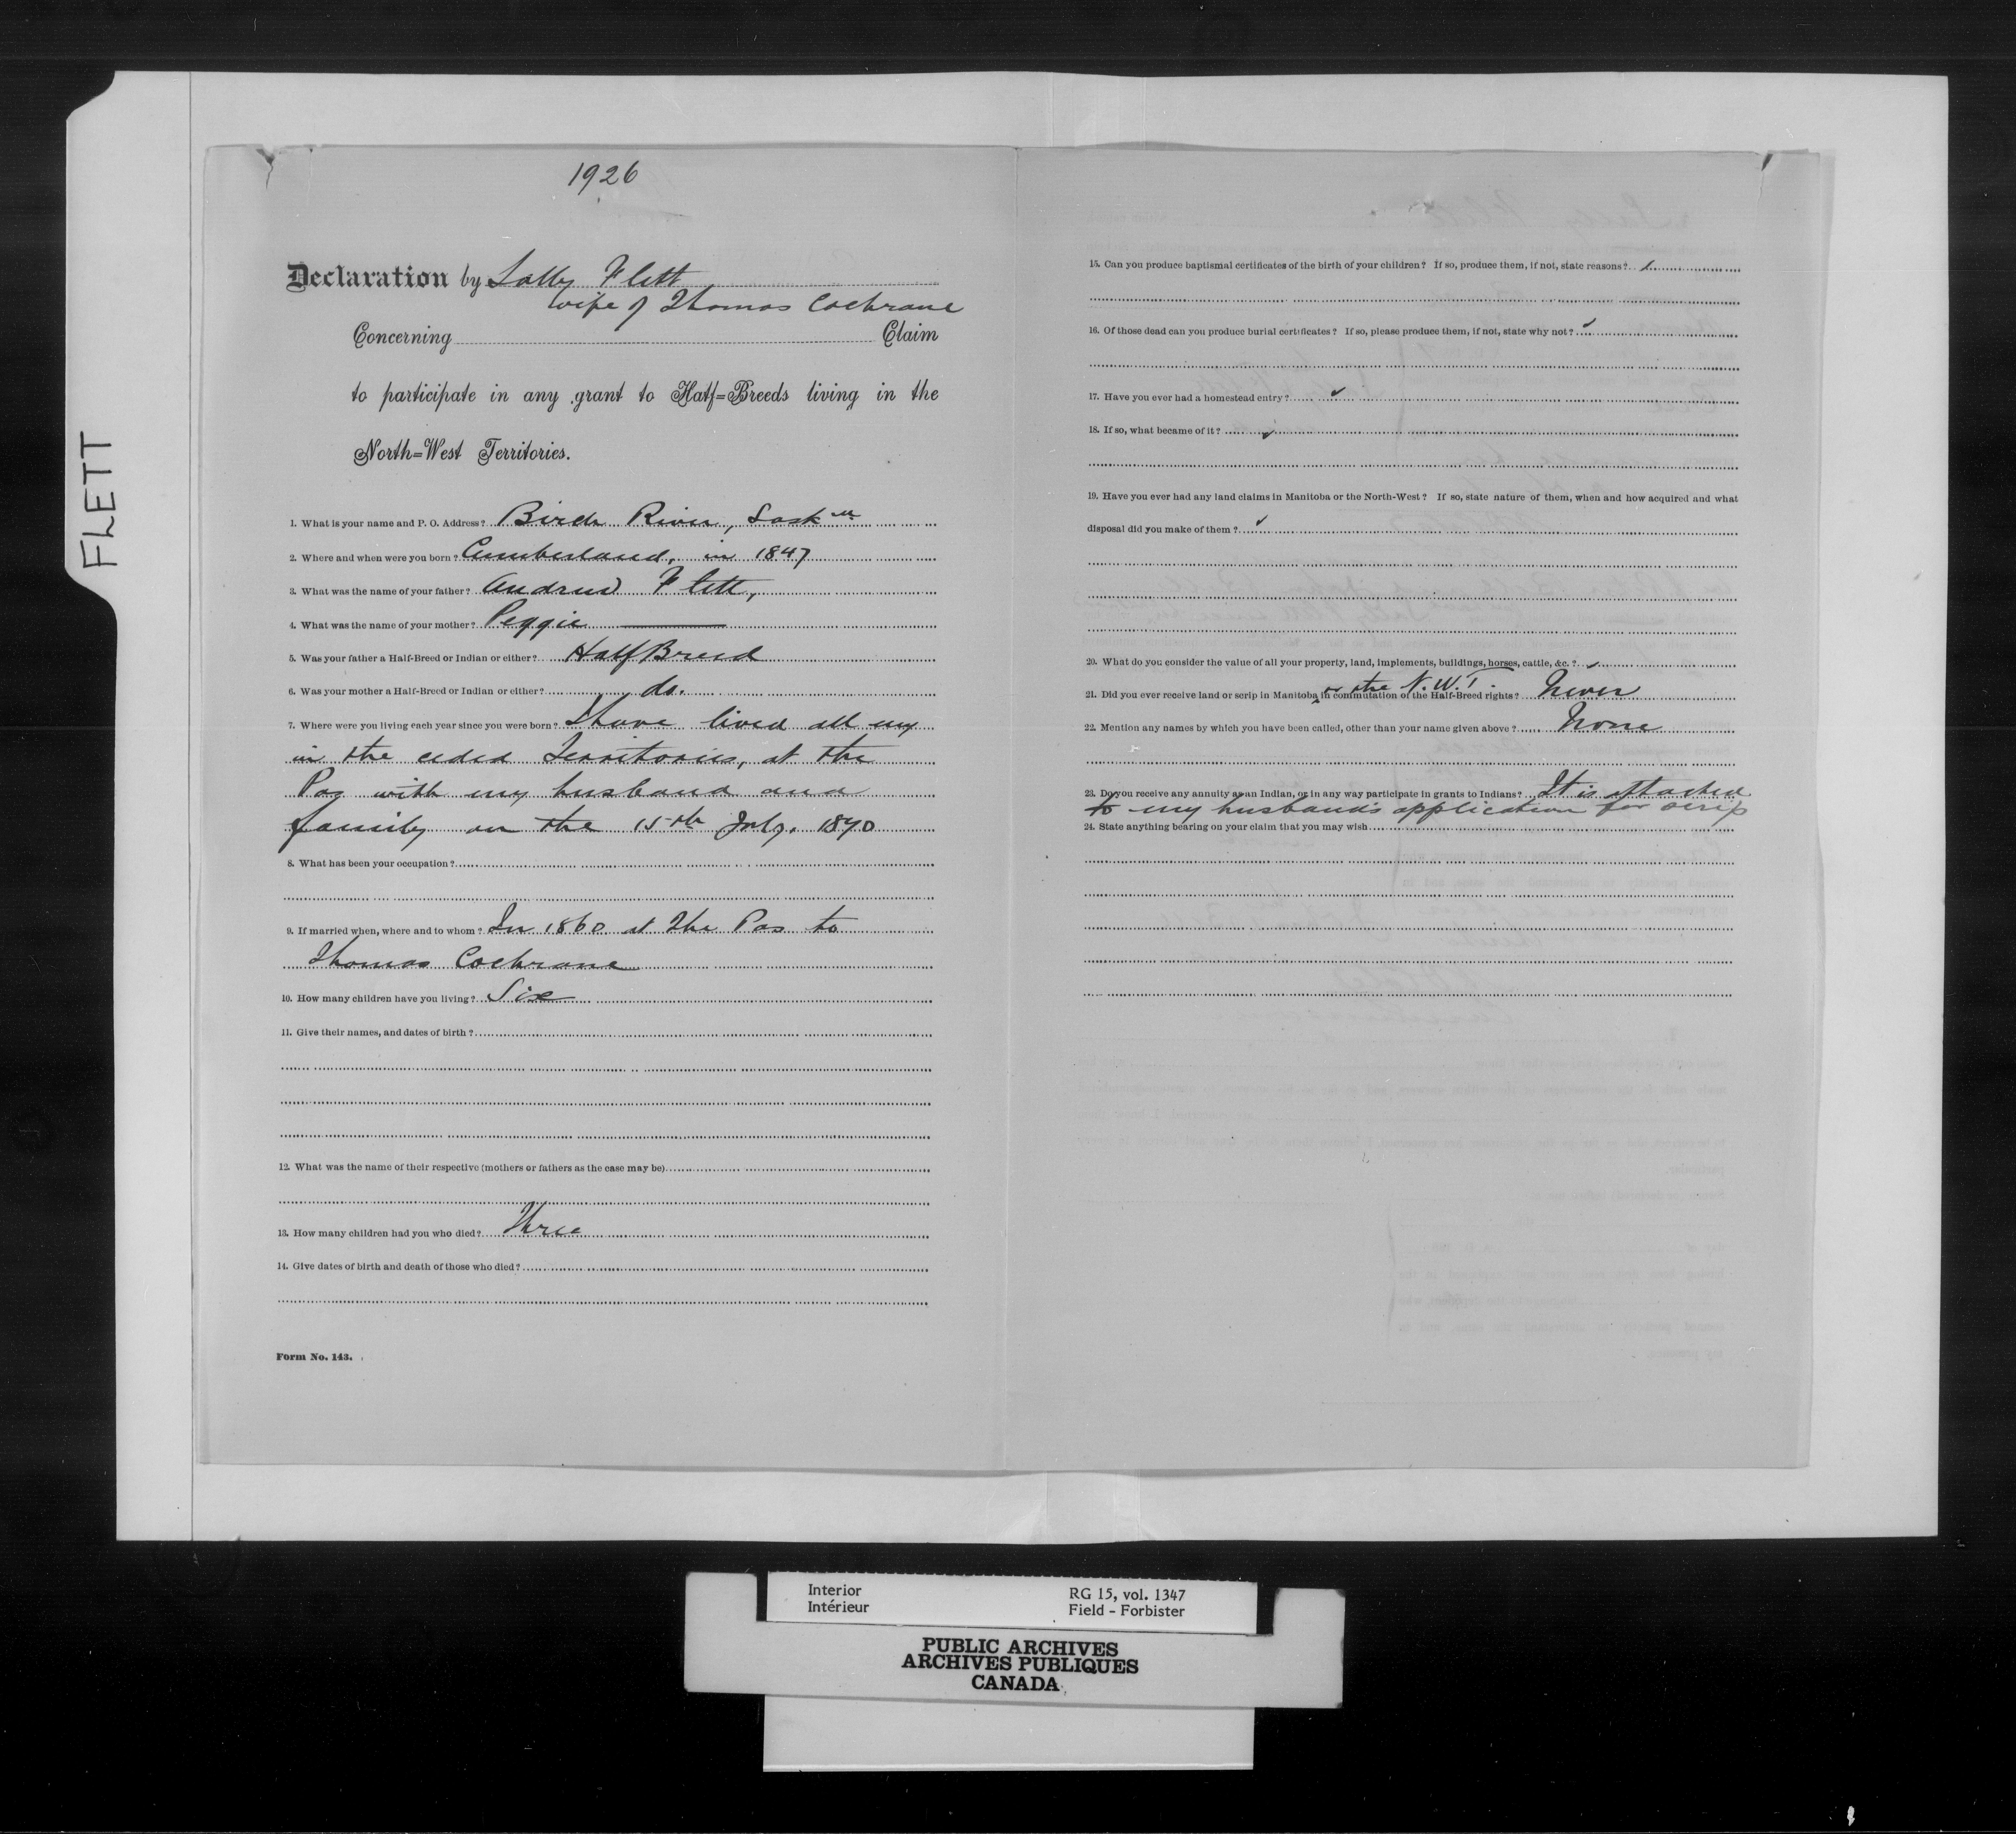 FLETT
1926
Declaration by Sally Flett
wife of Thomas Cochrane
Concerning Claim
to participate in any grant to Half=Breeds living in the
North=West Territories.
1. What is your name and P. O. Address? Birch River, Sask
2. Where and when were you born? Cumberland, in 1847
3. What was the name of your father? Andrew Flett,
4. What was the name of your mother? Peggie
5. Was your father a Half-Breed or Indian or either? Half Breed
6. Was your mother a Half-Breed or Indian or either? do.
7. Where were you living each year since you were born? I have lived all my
in the ceded Territories, at the
Pas with my husband and
family on the 15th July, 1870
8. What has been your occupation?
9. If married when, where and to whom? In 1860 at The Pas to
Thomas Cochrane
10. How many children have you living? Six
11. Give their names, and dates of birth?
12. What was the name of their respective (mothers or fathers as the case may be)
13. How many children had you who died? Three
14. Give dates of birth and death of those who died?
Form No. 143.
15. Can you produce baptismal certificates of the birth of your children? If so, produce them, if not, state reasons?
16. Of those dead can you produce burial certificates? If so, please produce them, if not, state why not?
17. Have you ever had a homestead entry?
18. If so, what became of it?
19. Have you ever had any land claims in Manitoba or the North-West? If so, state nature of them, when and how acquired and what
disposal did you make of them?
20. What do you consider the value of all your property, land, implements, buildings, horses, cattle, &c.?
or the N.W.T.
21. Did you ever receive land or scrip in Manitoba in commutation of the Half-Breed rights? Never
22. Mention any names by which you have been called, other than your name given above? None
23. Do you receive any annuity as an Indian, or in any way participate in grants to Indians? It is attached
to my husband's application for scrip
24. State anything bearing on your claim that you may wish
Interior
Intérieur
RG 15, vol. 1347
Field - Forbister
PUBLIC ARCHIVES
ARCHIVES PUBLIQUES
CANADA